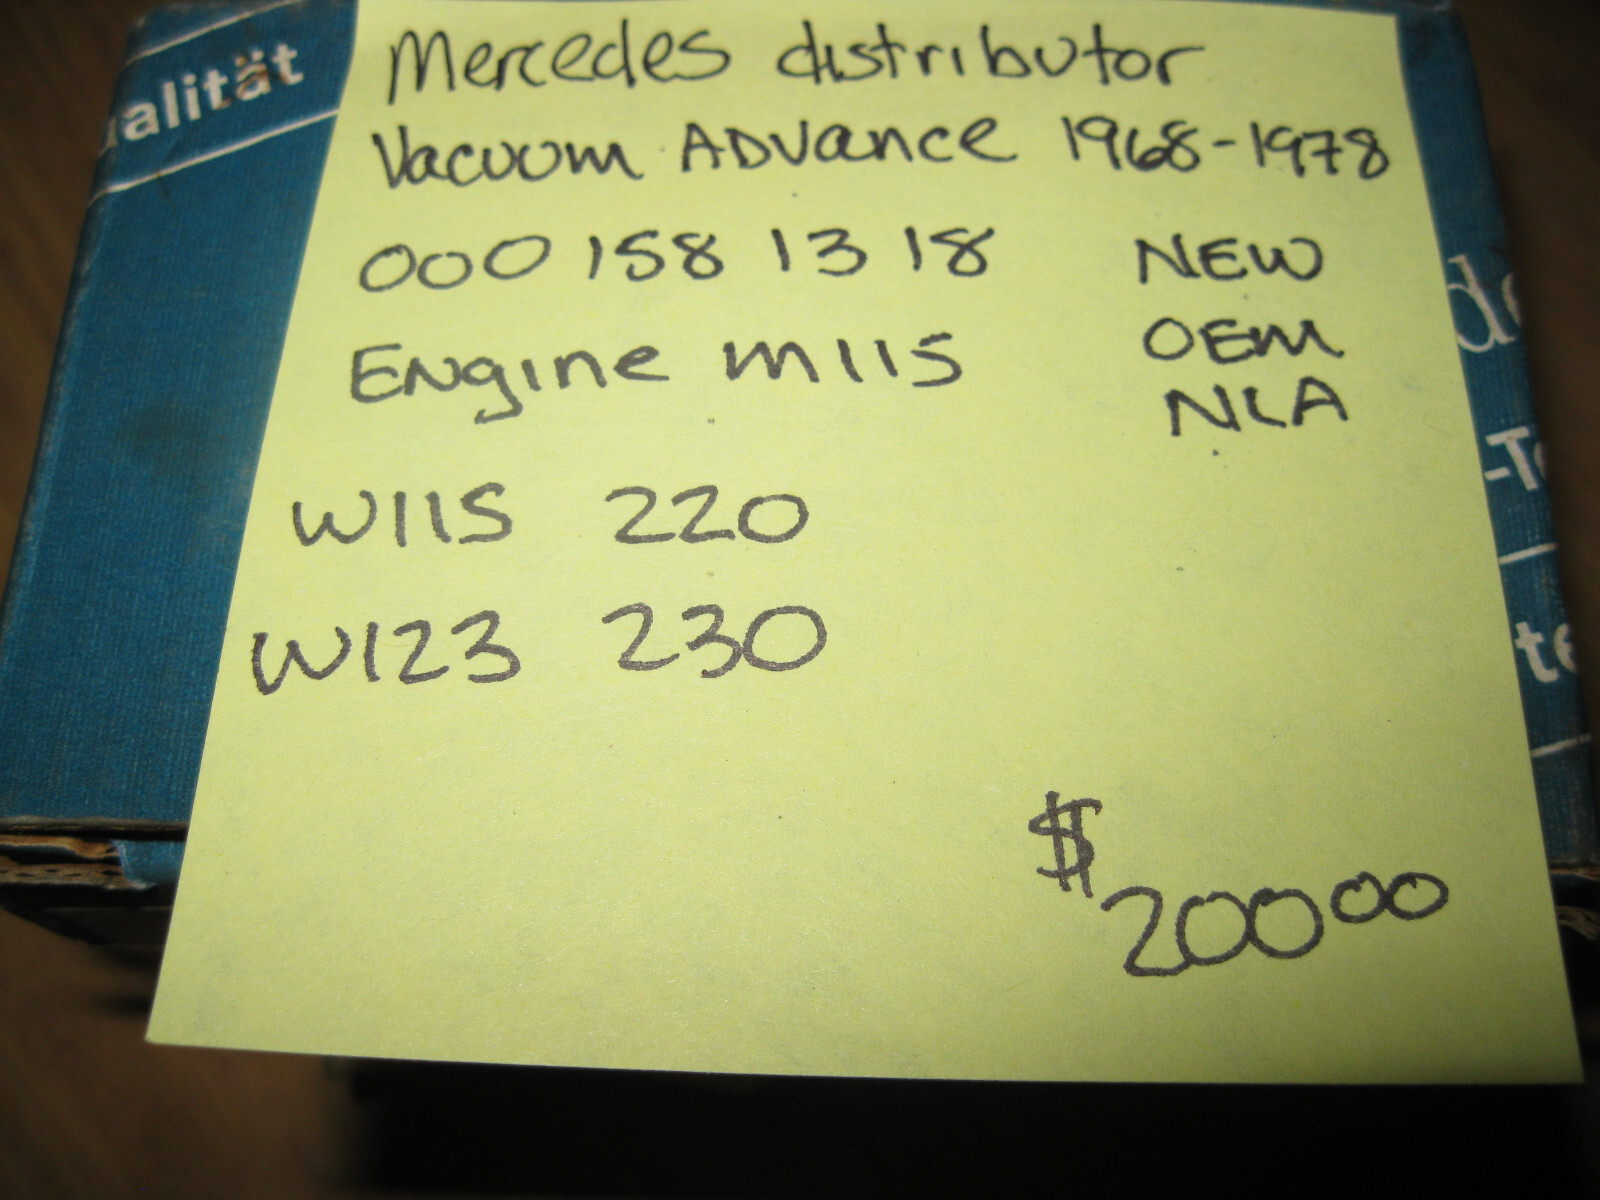 Mercedes distributor
Vacuum ADVance 1968-1978
000 158 13 18 NEW
ENgine M115 OEM
NLA
W115 220
W123 230
$200.00
alität
de
-Te
te